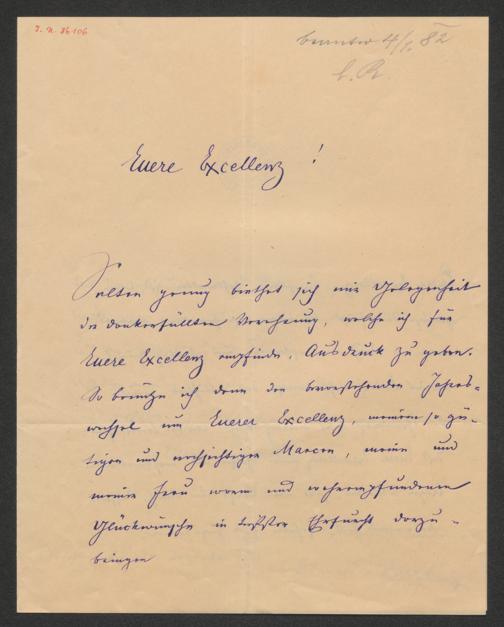 I. N. 86.106
beantw. 4/1. 82
Euere Excellenz!
Selten genug biethet sich mir Gelegenheit
der dankerfüllten Verehrung, welche ich für
Euere Excellenz empfinde, Ausdruck zu geben.
So benütze ich denn den bevorstehenden Jahres-
wechsel um Euerer Excellenz, meinem so gü-
tigen und nachsichtigen Mäcen, meine und
meiner Frau warm und wahrempfundenen
Glückwünsche in tiefster Ehrfurcht darzu-
bringen